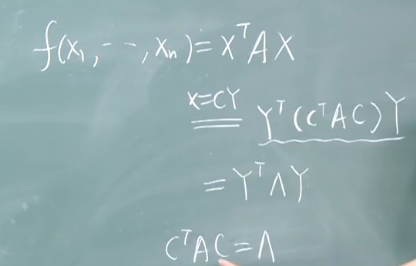 f(x₁, --, xₙ) = XᵀAX
X=CY Yᵀ(CᵀAC)Y
= YᵀΛY
CᵀAC = Λ